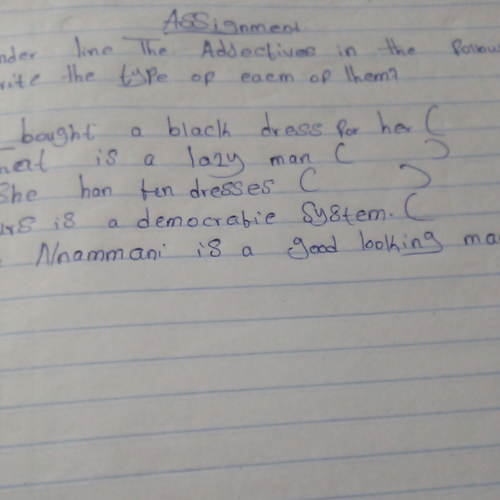 Assignment
nder line The Addectives in the follow
rite the type of each of them?
I bought a black dress for her (
is a lazy man ( )
She han ten dresses ( )
urs is a democratic system. (
Nnammani is a good looking ma